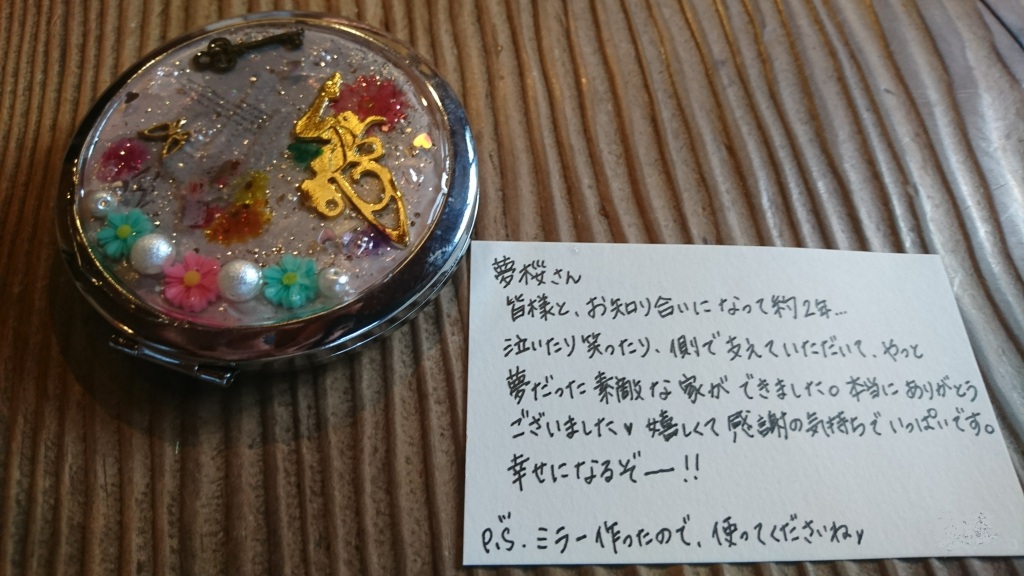 夢桜さん
皆様と、お知り合いになって約2年…
泣いたり笑ったり、側で支えていただいて、やっと
夢だった素敵な家ができました。本当にありがとう
ございました♥ 嬉しくて感謝の気持ちでいっぱいです。
幸せになるぞー!!
P.S. ミラー作ったので、使ってくださいね♥